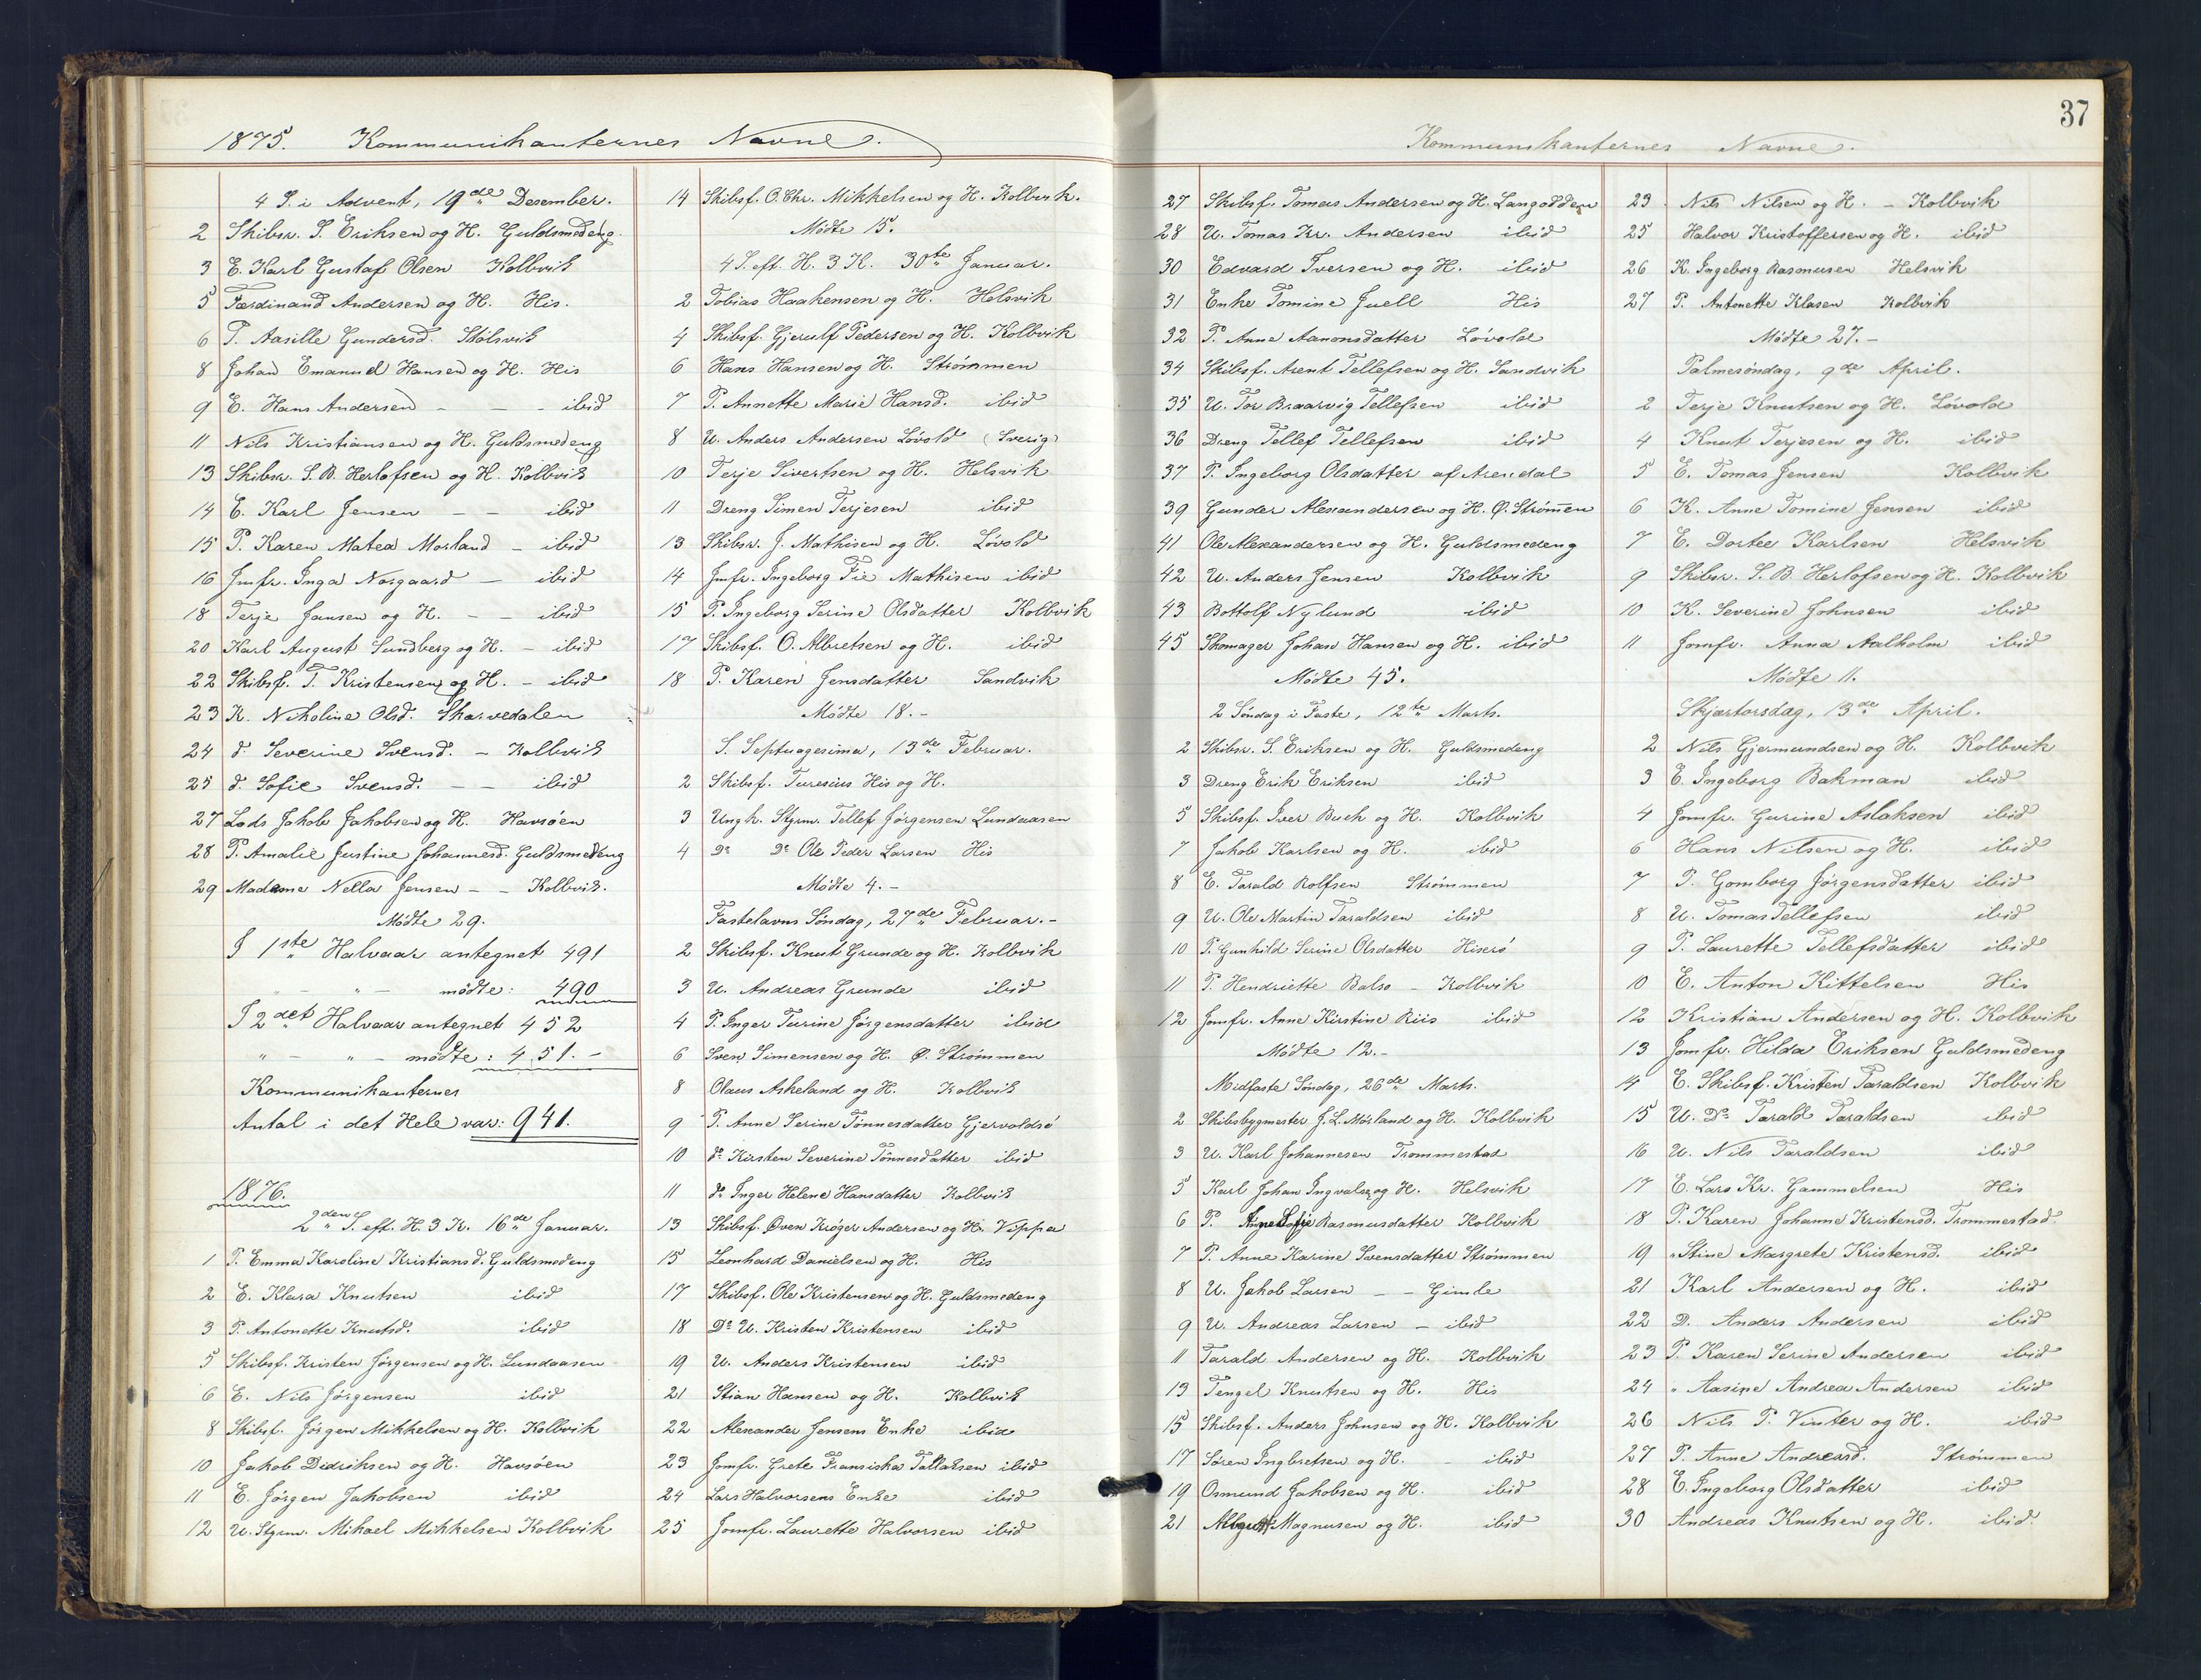 1875. Kommunikanternes Navne.
4 S. i Advent, 19de Desember.
2 Skibsr. S. Eriksen og H. Guldsmedeng.
3 E. Karl Gustaf Olsen Kolbvik
5 Færdinand Andersen og H. His.
6 P. Aasille Gundersd. Stølsvik
8 Johan Emanuel Hansen og H. His
9 E. Hans Andersen - - - ibid
11 Nils Kristiansen og H. Guldsmedeng
13 Skibsr. S. B. Herlofsen og H. Kolbvik
14 E. Karl Jensen - - ibid
15 P. Karen Matea Morland - ibid
16 Jmfr. Inga Norgaard - ibid
18 Terje Jansen og H. - - ibid
20 Karl August Sundberg og H. - ibid
22 Skibsf. T. Kristensen og H. - ibid
23 K. Nikoline Olsd. Skarvedalen
24 d. Severine Svensd. - Kolbvik
25 d. Sofie Svensd. - - ibid
27 Lods Jakob Jakobsen og H. Havsøen
28 P. Amalie Justine Johannesd. Guldsmedeng
29 Madame Nella Jensen - - Kolbvik.
Mødte 29.
I 1ste Halvaar antegnet 491
" - " - mødte: 490
I 2det Halvaar antegnet 452
" - " - mødte: 451. -
Kommunikanternes
Antal i det Hele var: 941.
1876.
2den S. eft. H. 3 K. 16de Januar.
1 P. Emma Karoline Kristiansd. Guldsmedeng
2 E. Klara Knutsen ibid
3 P. Antonette Knutsd. ibid
5 Skibsf. Kristen Jørgensen og H. Lundaasen
6 E. Nils Jørgensen ibid
8 Skibsf. Jørgen Mikkelsen og H. Kolbvik
10 Jakob Didriksen og H. Havsøen
11 E. Jørgen Jakobsen ibid
12 U. Styrm. Mikael Mikkelsen Kolbvik
14 Skibsf. O. Chr. Mikkelsen og H. Kolbvik.
Mødte 15.
4 S. eft. H. 3 K. 30te Januar.
2 Tobias Haakensen og H. Helsvik
4 Skibsf. Gjerulf Pedersen og H. Kolbvik
6 Hans Hansen og H. Strømmen
7 P. Annette Marie Hansd. ibid
8 U. Anders Andersen Løvold (Sverig)
10 Terje Sivertsen og H. Helsvik
11 Dreng Simen Terjesen ibid
13 Skibsr. J. Mathisen og H. Løvold
14 Jmfr. Ingeborg Fie Mathisen ibid
15 P. Ingeborg Serine Olsdatter Kolbvik
17 Skibsf. O. Albretsen og H. ibid
18 P. Karen Jensdatter Sandvik
Mødte 18. -
S. Septuagesima, 13de Februar.
2 Skibsf. Turesius His og H.
3 Ungk. Styrm. Tellef Jörgensen Lundaasen
4 Do Do Ole Peder Larsen His
Mødte 4. -
Fastelavns Søndag, 27de Februar. -
2 Skibsf. Knut Grunde og H. Kolbvik
3 U. Andreas Grunde ibid
4 P. Inger Turine Jörgensdatter ibid
6 Sven Simensen og H. Ø. Strømmen
8 Olaus Askeland og H. Kolbvik
9 P. Anne Serine Tønnesdatter Gjervoldsø
10 do Kirsten Severine Tønnesdatter ibid
11 do Inger Helene Hansdatter Kolbvik
13 Skibsf. Øven Krøger Andersen og H. Vippa
15 Leonhard Danielsen og H. His
17 Skibsf. Ole Kristensen og H. Guldsmedeng
18 Do U. Kristen Kristensen ibid
19 U. Anders Kristensen ibid
21 Stian Hansen og H. Kolbvik
22 Alexander Jensens Enke ibid
23 Jomfr. Grete Fransiska Tallaksen ibid
24 Lars Halvorsens Enke ibid
25 Jomfr. Laurette Halvorsen ibid
37
Kommunikanternes Navne.
27 Skibsf. Tomas Andersen og H. Langodden
28 U. Tomas Kr. Andersen ibid
30 Edvard Iversen og H. ibid
31 Enke Tomine Juell His
32 P. Anne Aanonsdatter Løvold
34 Skibsf. Arent Tellefsen og H. Sandvik
35 U. Tor Braarvig Tellefsen ibid
36 Dreng Tellef Tellefsen ibid
37 P. Ingeborg Olsdatter af Arendal
39 Gunder Alexandersen og H. Ø. Strømen
41 Ole Alexandersen og H. Guldsmedeng
42 U. Anders Jensen Kolbvik
43 Bottolf Nylund ibid
45 Skomager Johan Hansen og H. ibid
Mødte 45.
2 Søndag i Faste, 12te Marts.
2 Skibsr. S. Eriksen og H. Guldsmedeng
3 Dreng Erik Eriksen ibid
5 Skibsf. Iver Buch og H. Kolbvik
7 Jakob Karlsen og H. ibid
8 E. Tarald Rolfsen Strømmen
9 U. Ole Martin Taraldsen ibid
10 P. Gunhild Serine Olsdatter Hiserø
11 P. Hendriette Balso - Kolbvik
12 Jomfr. Anne Kirstine Riis ibid
Mødte 12. -
Midfaste Søndag, 26de Marts.
2 Skibsbygmester J. L. Mørland og H. Kolbvik
3 U. Karl Johannesen Trommestad
5 Karl Johan Ingvalds og H. Helsvik
6 P. Sofie Rasmusdatter Kolbvik
7 P. Anne Karine Svensdatter Strømmen
8 U. Jakob Larsen - - Gimle
9 U. Andreas Larsen - ibid
11 Tarald Andersen og H. Kolbvik
13 Tengel Knutsen og H. His
15 Skibsf. Anders Johnsen og H. Kolbvik
17 Søren Ingbretsen og H. - ibid
19 Osmund Jakobsen og H. ibid
21 Magnusen og H. ibid
23 Nils Nilsen og H. - Kolbvik
25 Halvor Kristoffersen og H. ibid
26 K. Ingeborg Rasmusen Helsvik
27 P. Antonette Klasen Kolbvik
Mødte 27. -
Palmesøndag, 9de April.
2 Terje Knutsen og H. Løvold
4 Knut Terjesen og H. ibid
5 E. Tomas Jensen Kolbvik
6 K. Anne Tomine Jensen ibid
7 E. Dortee Karlsen Helsvik
9 Skibsr. S. B. Herlofsen og H. Kolbvik
10 K. Severine Johnsen ibid
11 Jomfr. Anna Aalholm ibid
Mødte 11.
Skjærtorsdag, 13de April.
2 Nils Gjermundsen og H. Kolbvik
3 E. Ingeborg Bakman ibid
4 Jomfr. Gurine Aslaksen ibid
6 Hans Nilsen og H. ibid
7 P. Gomborg Jørgensdatter ibid
8 U. Tomas Tellefsen ibid
9 P. Laurette Tellefsdatter ibid
10 E. Anton Kittelsen His
12 Kristian Andersen og H. Kolbvik
13 Jomfr. Hilda Eriksen Guldsmedeng
14 E. Skibsf. Kristen Taraldsen Kolbvik
15 U. Do Tarald Taraldsen ibid
16 U. Nils Taraldsen ibid
17 E. Lars Kr. Gammelsen His
18 P. Karen Johanne Kristensd. Trommestad.
19 " Stine Margrete Kristensd. ibid
21 Karl Andersen og H. ibid
22 D. Anders Andersen ibid
23 P. Karen Serine Andersen ibid
24 " Aasine Andrea Andersen ibid
26 Nils P. Vinter og H. ibid
27 P. Anne Andreasd. Strømmen
28 E. Ingeborg Olsdatter ibid
30 Andreas Knutsen og H. ibid.